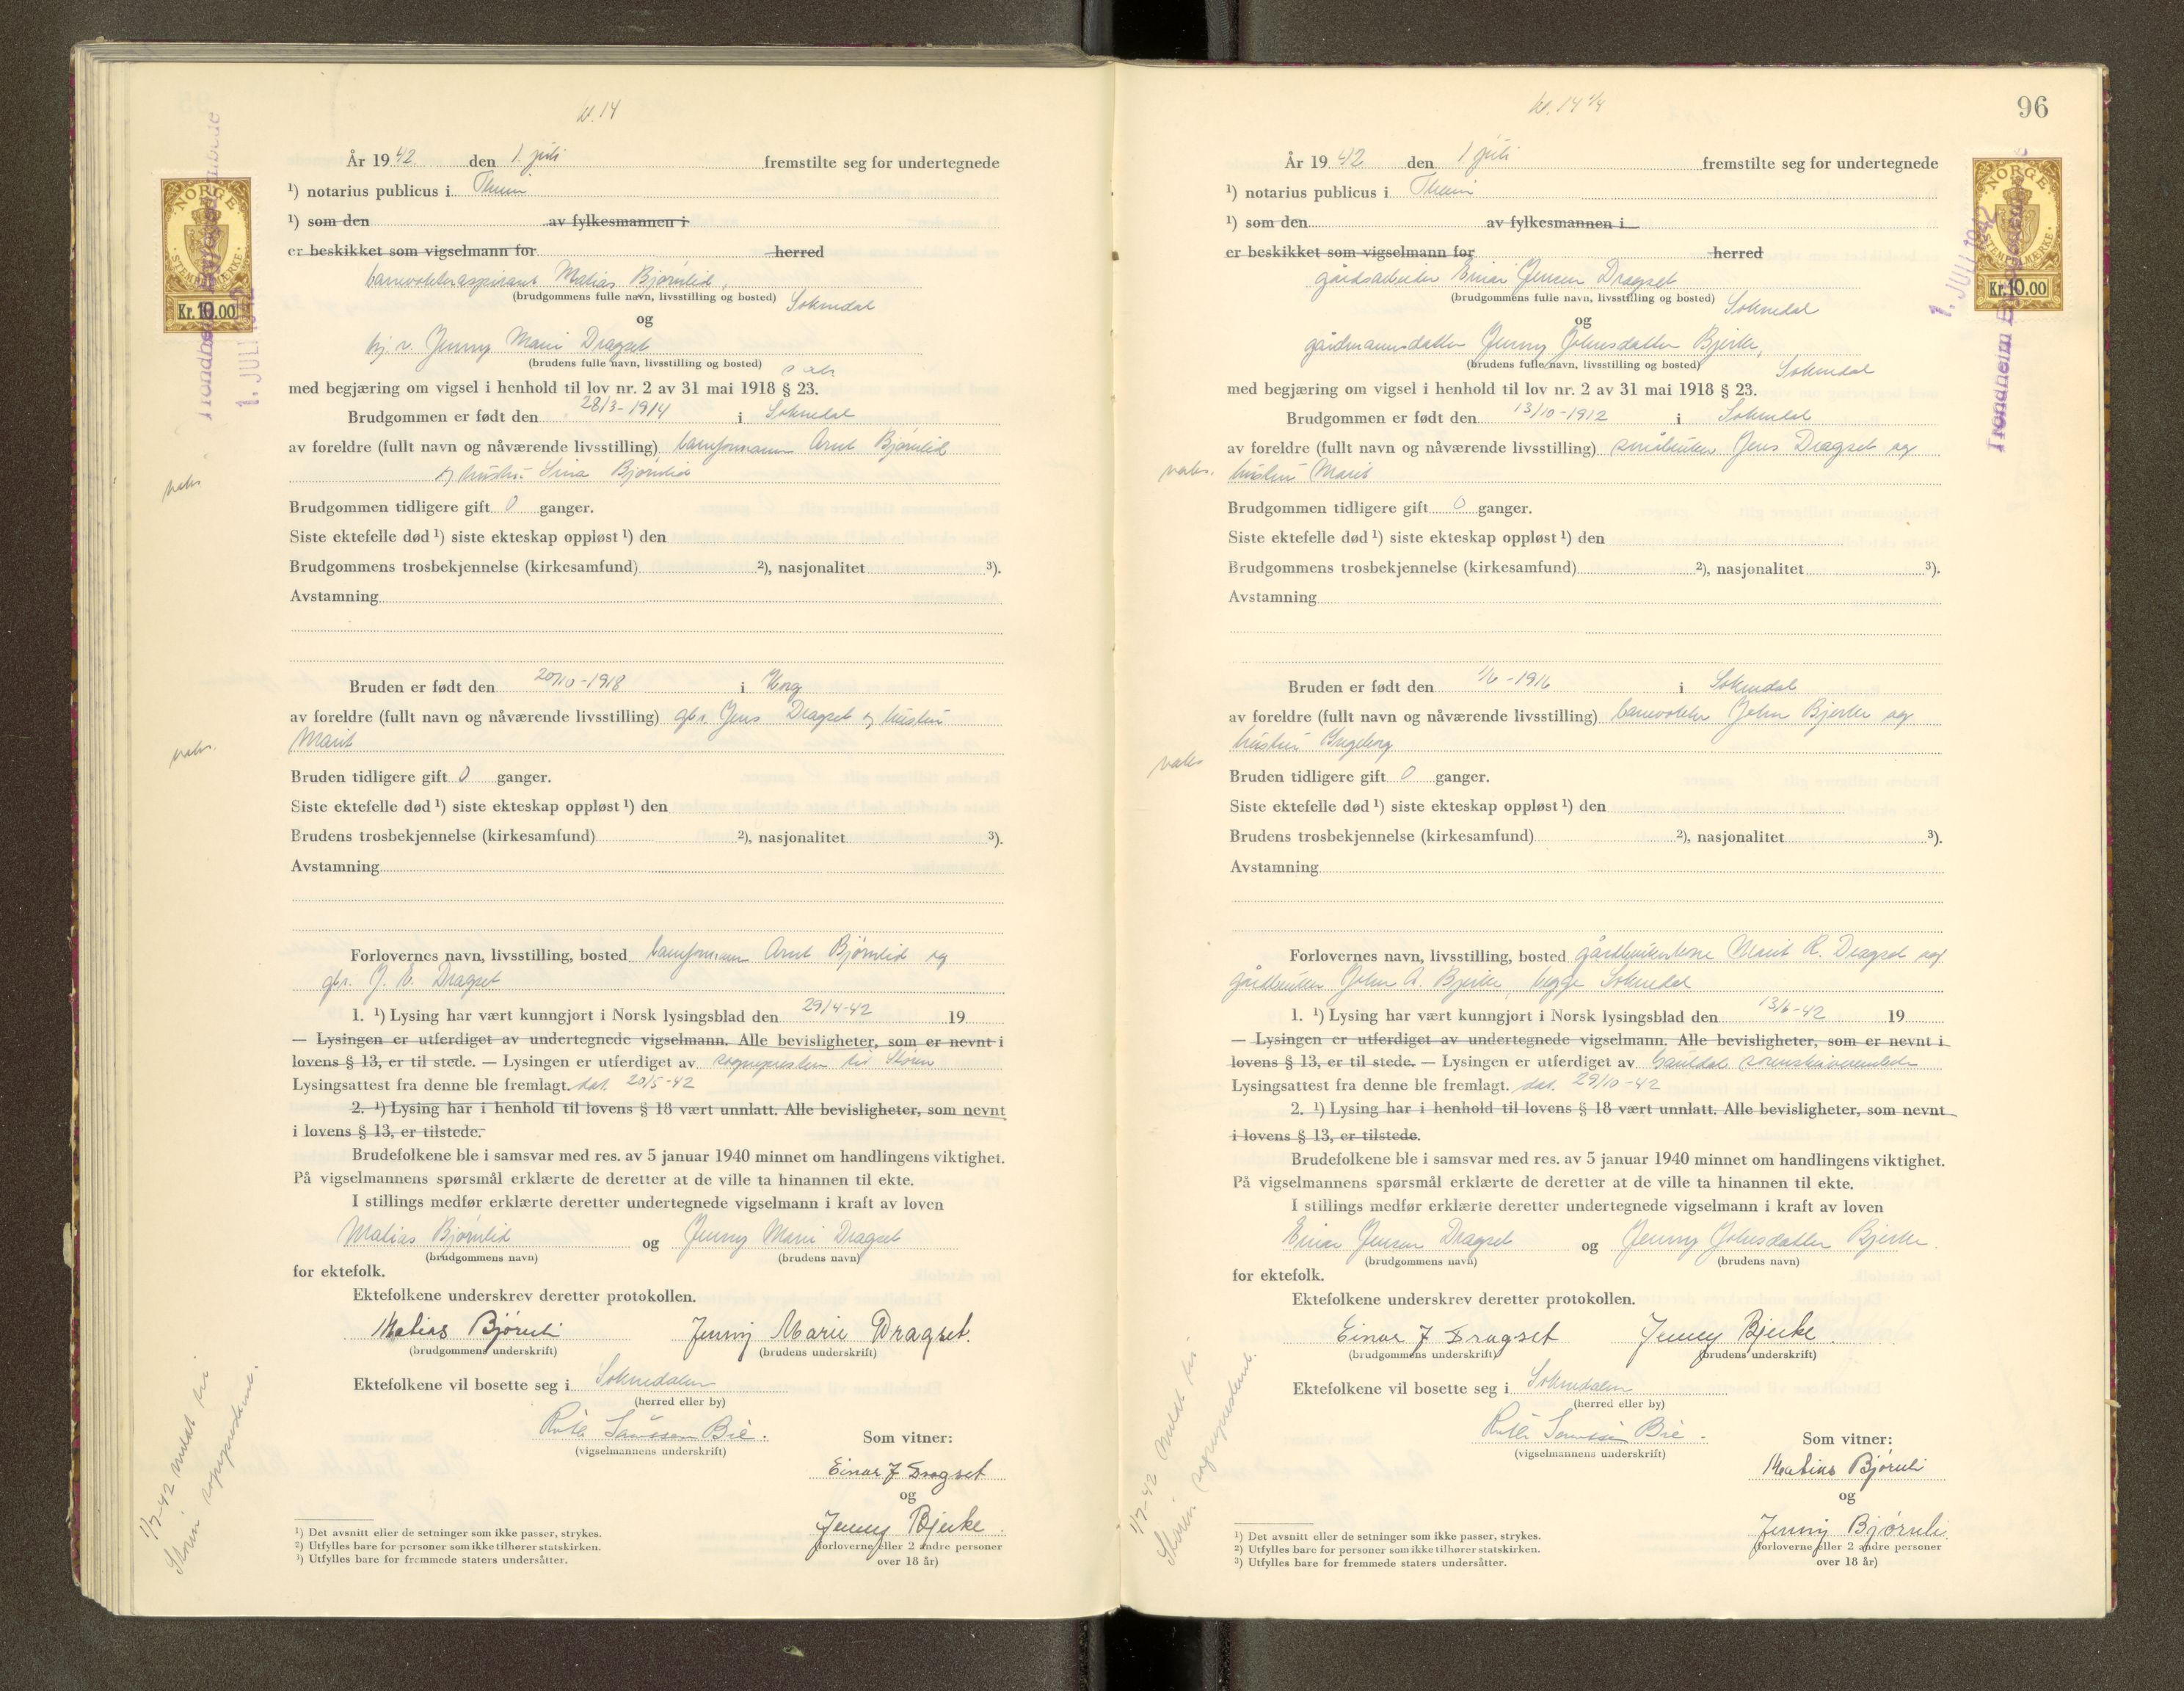 kl. 14
År 1942 den 1. juli fremstilte seg for undertegnede
¹) notarius publicus i Theim
¹) som den av fylkesmannen i
er beskikket som vigselmann for herred
banevokteraspirant Matias Bjørnlid,
(brudgommens fulle navn, livsstilling og bosted) Soknedal
og
hj. v. Jenny Marie Dragset
(brudens fulle navn, livsstilling og bosted) s. st.
med begjæring om vigsel i henhold til lov nr. 2 av 31 mai 1918 § 23.
Brudgommen er født den 28/3-1914 i Soknedal
av foreldre (fullt navn og nåværende livsstilling) baneformann Arnt Bjørnlid
og hustru Bjørnlid
vaks.
Brudgommen tidligere gift 0 ganger.
Siste ektefelle død ¹) siste ekteskap oppløst ¹) den
Brudgommens trosbekjennelse (kirkesamfund) ²), nasjonalitet ³).
Avstamning
Bruden er født den 20/10-1918 i Horg
av foreldre (fullt navn og nåværende livsstilling) gbr. Jens Dragset og hustru
Marit
vaks.
Bruden tidligere gift 0 ganger.
Siste ektefelle død ¹) siste ekteskap oppløst ¹) den
Brudens trosbekjennelse (kirkesamfund) ²), nasjonalitet ³).
Avstamning
Forlovernes navn, livsstilling, bosted baneformann Arnt Bjørnlid og
gbr. J. Dragset
1. ¹) Lysing har vært kunngjort i Norsk lysingsblad den 29/4-42 19
— Lysingen er utferdiget av undertegnede vigselmann. Alle bevisligheter, som er nevnt i
lovens § 13, er til stede. — Lysingen er utferdiget av sognepresten til Støren
Lysingsattest fra denne ble fremlagt. dat. 20/5-42
2. ¹) Lysing har i henhold til lovens § 18 vært unnlatt. Alle bevisligheter, som nevnt
i lovens § 13, er tilstede.
Brudefolkene ble i samsvar med res. av 5 januar 1940 minnet om handlingens viktighet.
På vigselmannens spørsmål erklærte de deretter at de ville ta hinannen til ekte.
I stillings medfør erklærte deretter undertegnede vigselmann i kraft av loven
Matias Bjørnlid og Jenny Marie Dragset
(brudgommens navn) (brudens navn)
for ektefolk.
Ektefolkene underskrev deretter protokollen.
Matias Bjørnli Jenny Marie Dragset.
(brudgommens underskrift) (brudens underskrift)
Ektefolkene vil bosette seg i Soknedalen
(herred eller by)
Ruth Bie.
(vigselmannens underskrift)
Som vitner:
Einar J Dragset
og
Jenny Bjerke.
(forloverne eller 2 andre personer
over 18 år)
¹) Det avsnitt eller de setninger som ikke passer, strykes.
²) Utfylles bare for personer som ikke tilhører statskirken.
³) Utfylles bare for fremmede staters undersåtter.
1/7-42 meldt til
Støren sogneprestemb.
NORGE
STEMPELMERKE
Kr. 10.00
1. JULI 1942
96
kl. 14 1/4
År 1942 den 1 juli fremstilte seg for undertegnede
¹) notarius publicus i Theim
¹) som den av fylkesmannen i
er beskikket som vigselmann for herred
gårdsarbeider Einar Jensen Dragset
(brudgommens fulle navn, livsstilling og bosted) Soknedal
og
gårdmannsdatter Jenny Johnsdatter Bjerke,
(brudens fulle navn, livsstilling og bosted) Soknedal
med begjæring om vigsel i henhold til lov nr. 2 av 31 mai 1918 § 23.
Brudgommen er født den 13/10-1912 i Soknedal
av foreldre (fullt navn og nåværende livsstilling) småbruker Jens Dragset og
vaks. hustru Marit
Brudgommen tidligere gift 0 ganger.
Siste ektefelle død ¹) siste ekteskap oppløst ¹) den
Brudgommens trosbekjennelse (kirkesamfund) ²), nasjonalitet ³).
Avstamning
Bruden er født den 1/6-1916 i Soknedal
av foreldre (fullt navn og nåværende livsstilling) banevokter John Bjerke og
hustru Ingeborg
vaks
Bruden tidligere gift 0 ganger.
Siste ektefelle død ¹) siste ekteskap oppløst ¹) den
Brudens trosbekjennelse (kirkesamfund) ²), nasjonalitet ³).
Avstamning
Forlovernes navn, livsstilling, bosted gårdbrukerkone Marit R. Dragset og
gårdbruker John A. Bjerke, begge Soknedal
1. ¹) Lysing har vært kunngjort i Norsk lysingsblad den 13/6-42 19
— Lysingen er utferdiget av undertegnede vigselmann. Alle bevisligheter, som er nevnt i
lovens § 13, er til stede. — Lysingen er utferdiget av Gauldal sorenskriverembete
Lysingsattest fra denne ble fremlagt. dat. 29/10-42
2. ¹) Lysing har i henhold til lovens § 18 vært unnlatt. Alle bevisligheter, som nevnt
i lovens § 13, er tilstede.
Brudefolkene ble i samsvar med res. av 5 januar 1940 minnet om handlingens viktighet.
På vigselmannens spørsmål erklærte de deretter at de ville ta hinannen til ekte.
I stillings medfør erklærte deretter undertegnede vigselmann i kraft av loven
Einar Jensen Dragset og Jenny Johnsdatter Bjerke.
(brudgommens navn) (brudens navn)
for ektefolk.
Ektefolkene underskrev deretter protokollen.
Einar J Dragset Jenny Bjerke.
(brudgommens underskrift) (brudens underskrift)
Ektefolkene vil bosette seg i Soknedalen
(herred eller by)
Ruth Bie.
(vigselmannens underskrift)
Som vitner:
Matias Bjørnli
og
Jenny Bjørnli.
(forloverne eller 2 andre personer
over 18 år)
¹) Det avsnitt eller de setninger som ikke passer, strykes.
²) Utfylles bare for personer som ikke tilhører statskirken.
³) Utfylles bare for fremmede staters undersåtter.
1/7-42 meldt til
Støren sogneprestemb.
NORGE
STEMPELMERKE
Kr. 10.00
1. JULI 1942
Trondheim